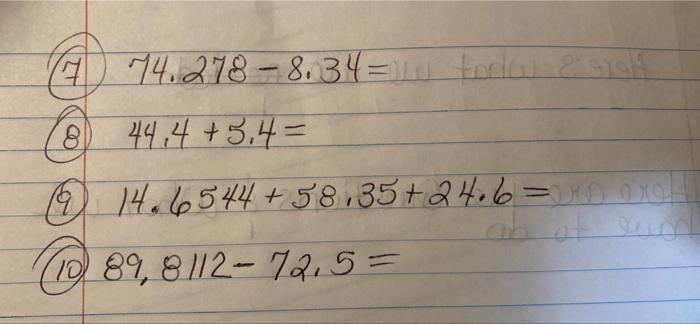 7 74.278 - 8.34 =
8 44.4 + 5.4 =
9 14.6544 + 58.35 + 24.6 =
10 89,8112 - 72.5 =